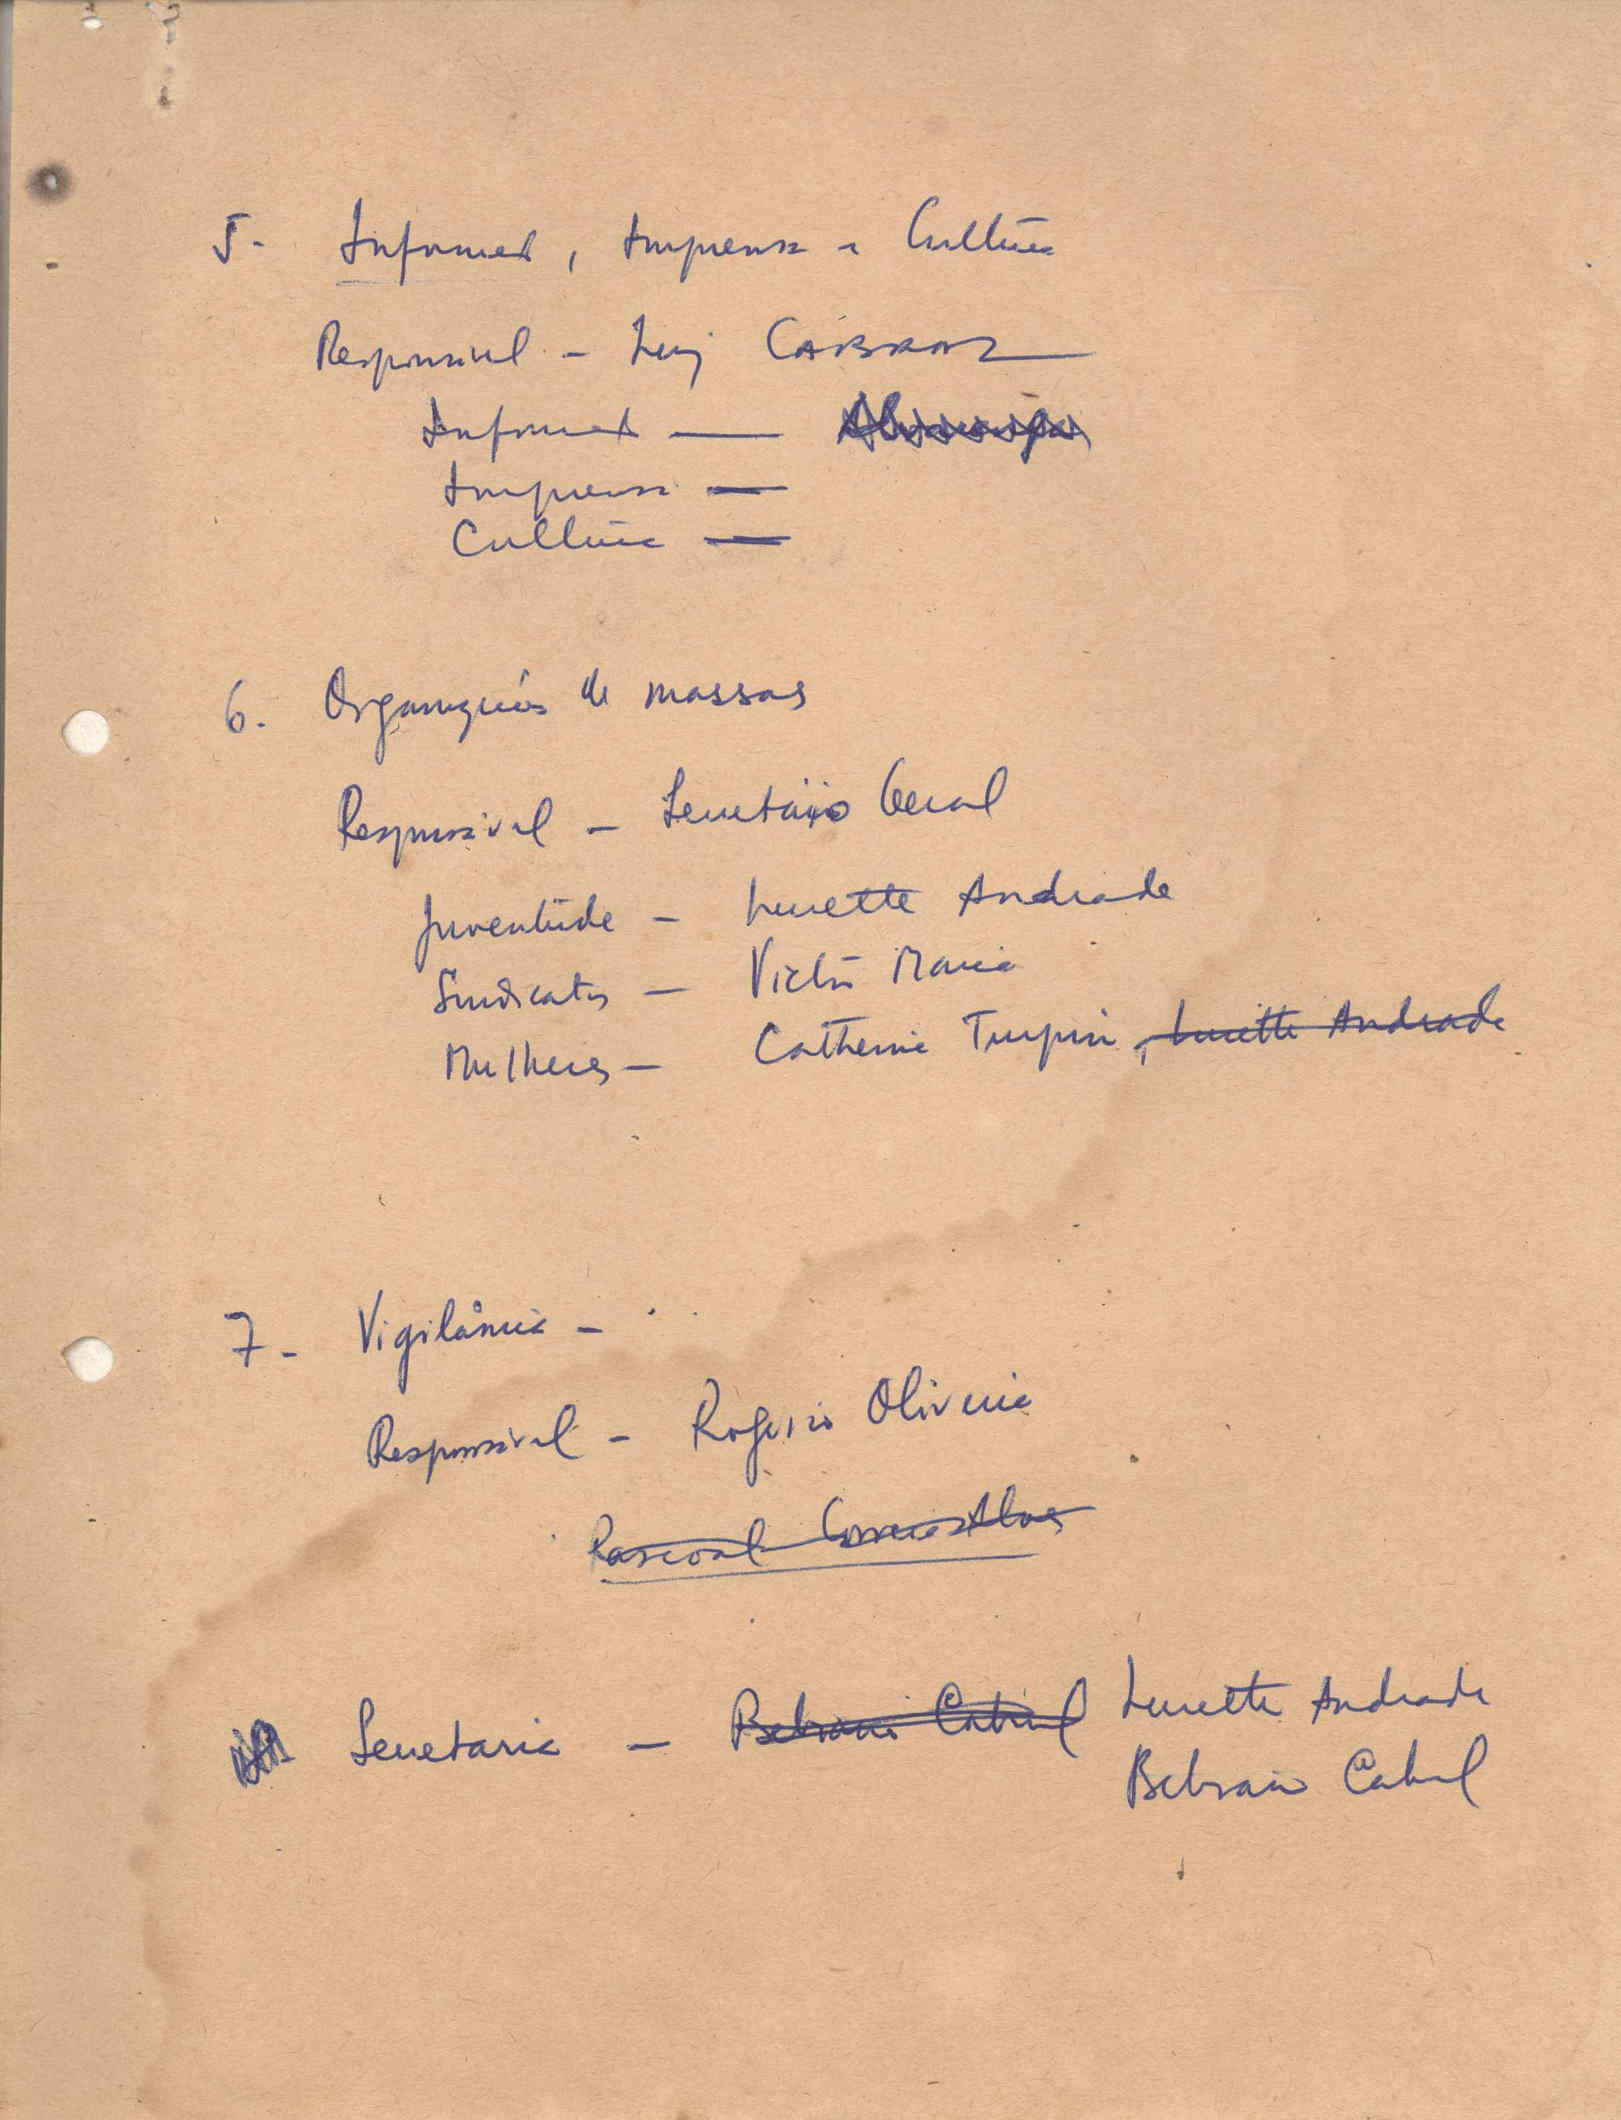 5. Informaç, Imprensa e Cultura
Responsável - Luiz CABRAL
Informaç —
Imprensa —
Cultura —
6. Organizações de massas
Responsável - Secretário Geral
Juventude - Lucette Andrade
Sindicatos - Victor Maria
Mulheres - Catherine Turpin, Lucette Andrade
7 - Vigilância -
Responsável - Rogerio Oliveira
Pascoal Correia Alves
Secretaria - Cabral Lucette Andrade
Cabral